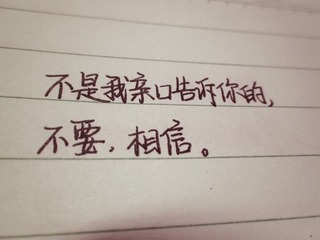 不是我亲口告诉你的,
不要,相信。